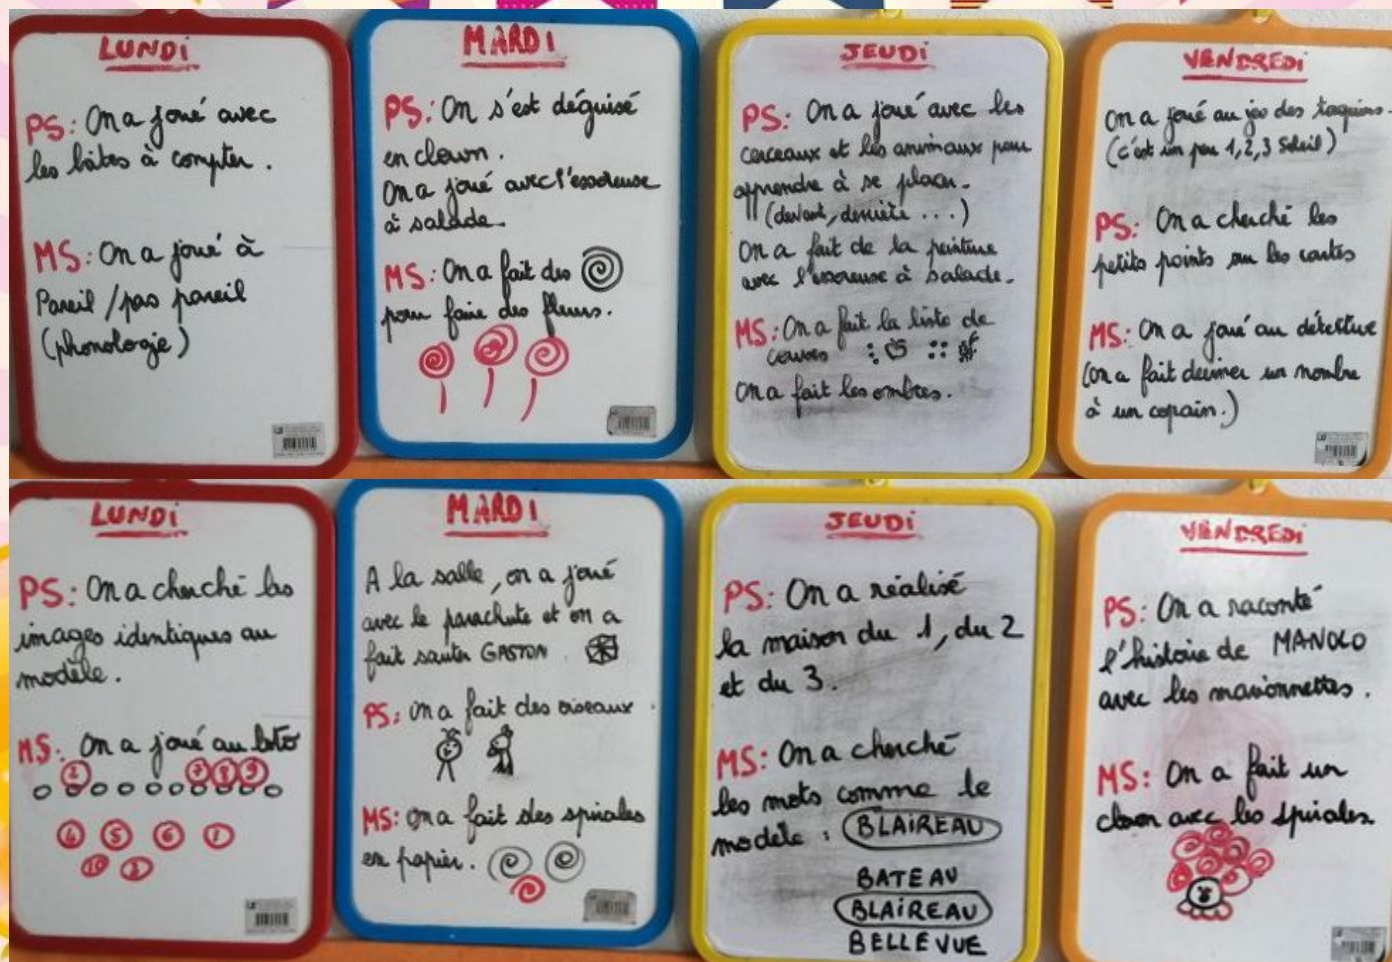 LUNDI
PS: On a joué avec
les boîtes à compter.
MS: On a joué à
Pareil / pas pareil
(phonologie)
MARDI
PS: On s'est déguisé
en clown.
On a joué avec l'essoreuse
à salade.
MS: On a fait des
pour faire des fleurs.
JEUDI
PS: On a joué avec les
cerceaux et les animaux pour
apprendre à se placer.
(devant, derrière ...)
On a fait de la peinture
avec l'essoreuse à salade.
MS: On a fait la liste de
courses
On a fait les ombres.
VENDREDI
On a joué au jeu des taquins.
(c'est un peu 1, 2, 3 Soleil)
PS: On a cherché les
petits points sur les cartes
MS: On a joué au détective
(on a fait deviner un nombre
à un copain.)
LUNDI
PS: On a cherché les
images identiques au
modèle.
MS: On a joué au loto
2 7 8 9
4 5 6 1
10 3
MARDI
A la salle, on a joué
avec le parachute et on a
fait sauter GASTON.
PS: On a fait des oiseaux.
MS: On a fait des spirales
en papier.
JEUDI
PS: On a réalisé
la maison du 1, du 2
et du 3.
MS: On a cherché
les mots comme le
modèle : BLAIREAU
BATEAU
BLAIREAU
BELLEVUE
VENDREDI
PS: On a raconté
l'histoire de MANOLO
avec les marionnettes.
MS: On a fait un
clown avec les spirales